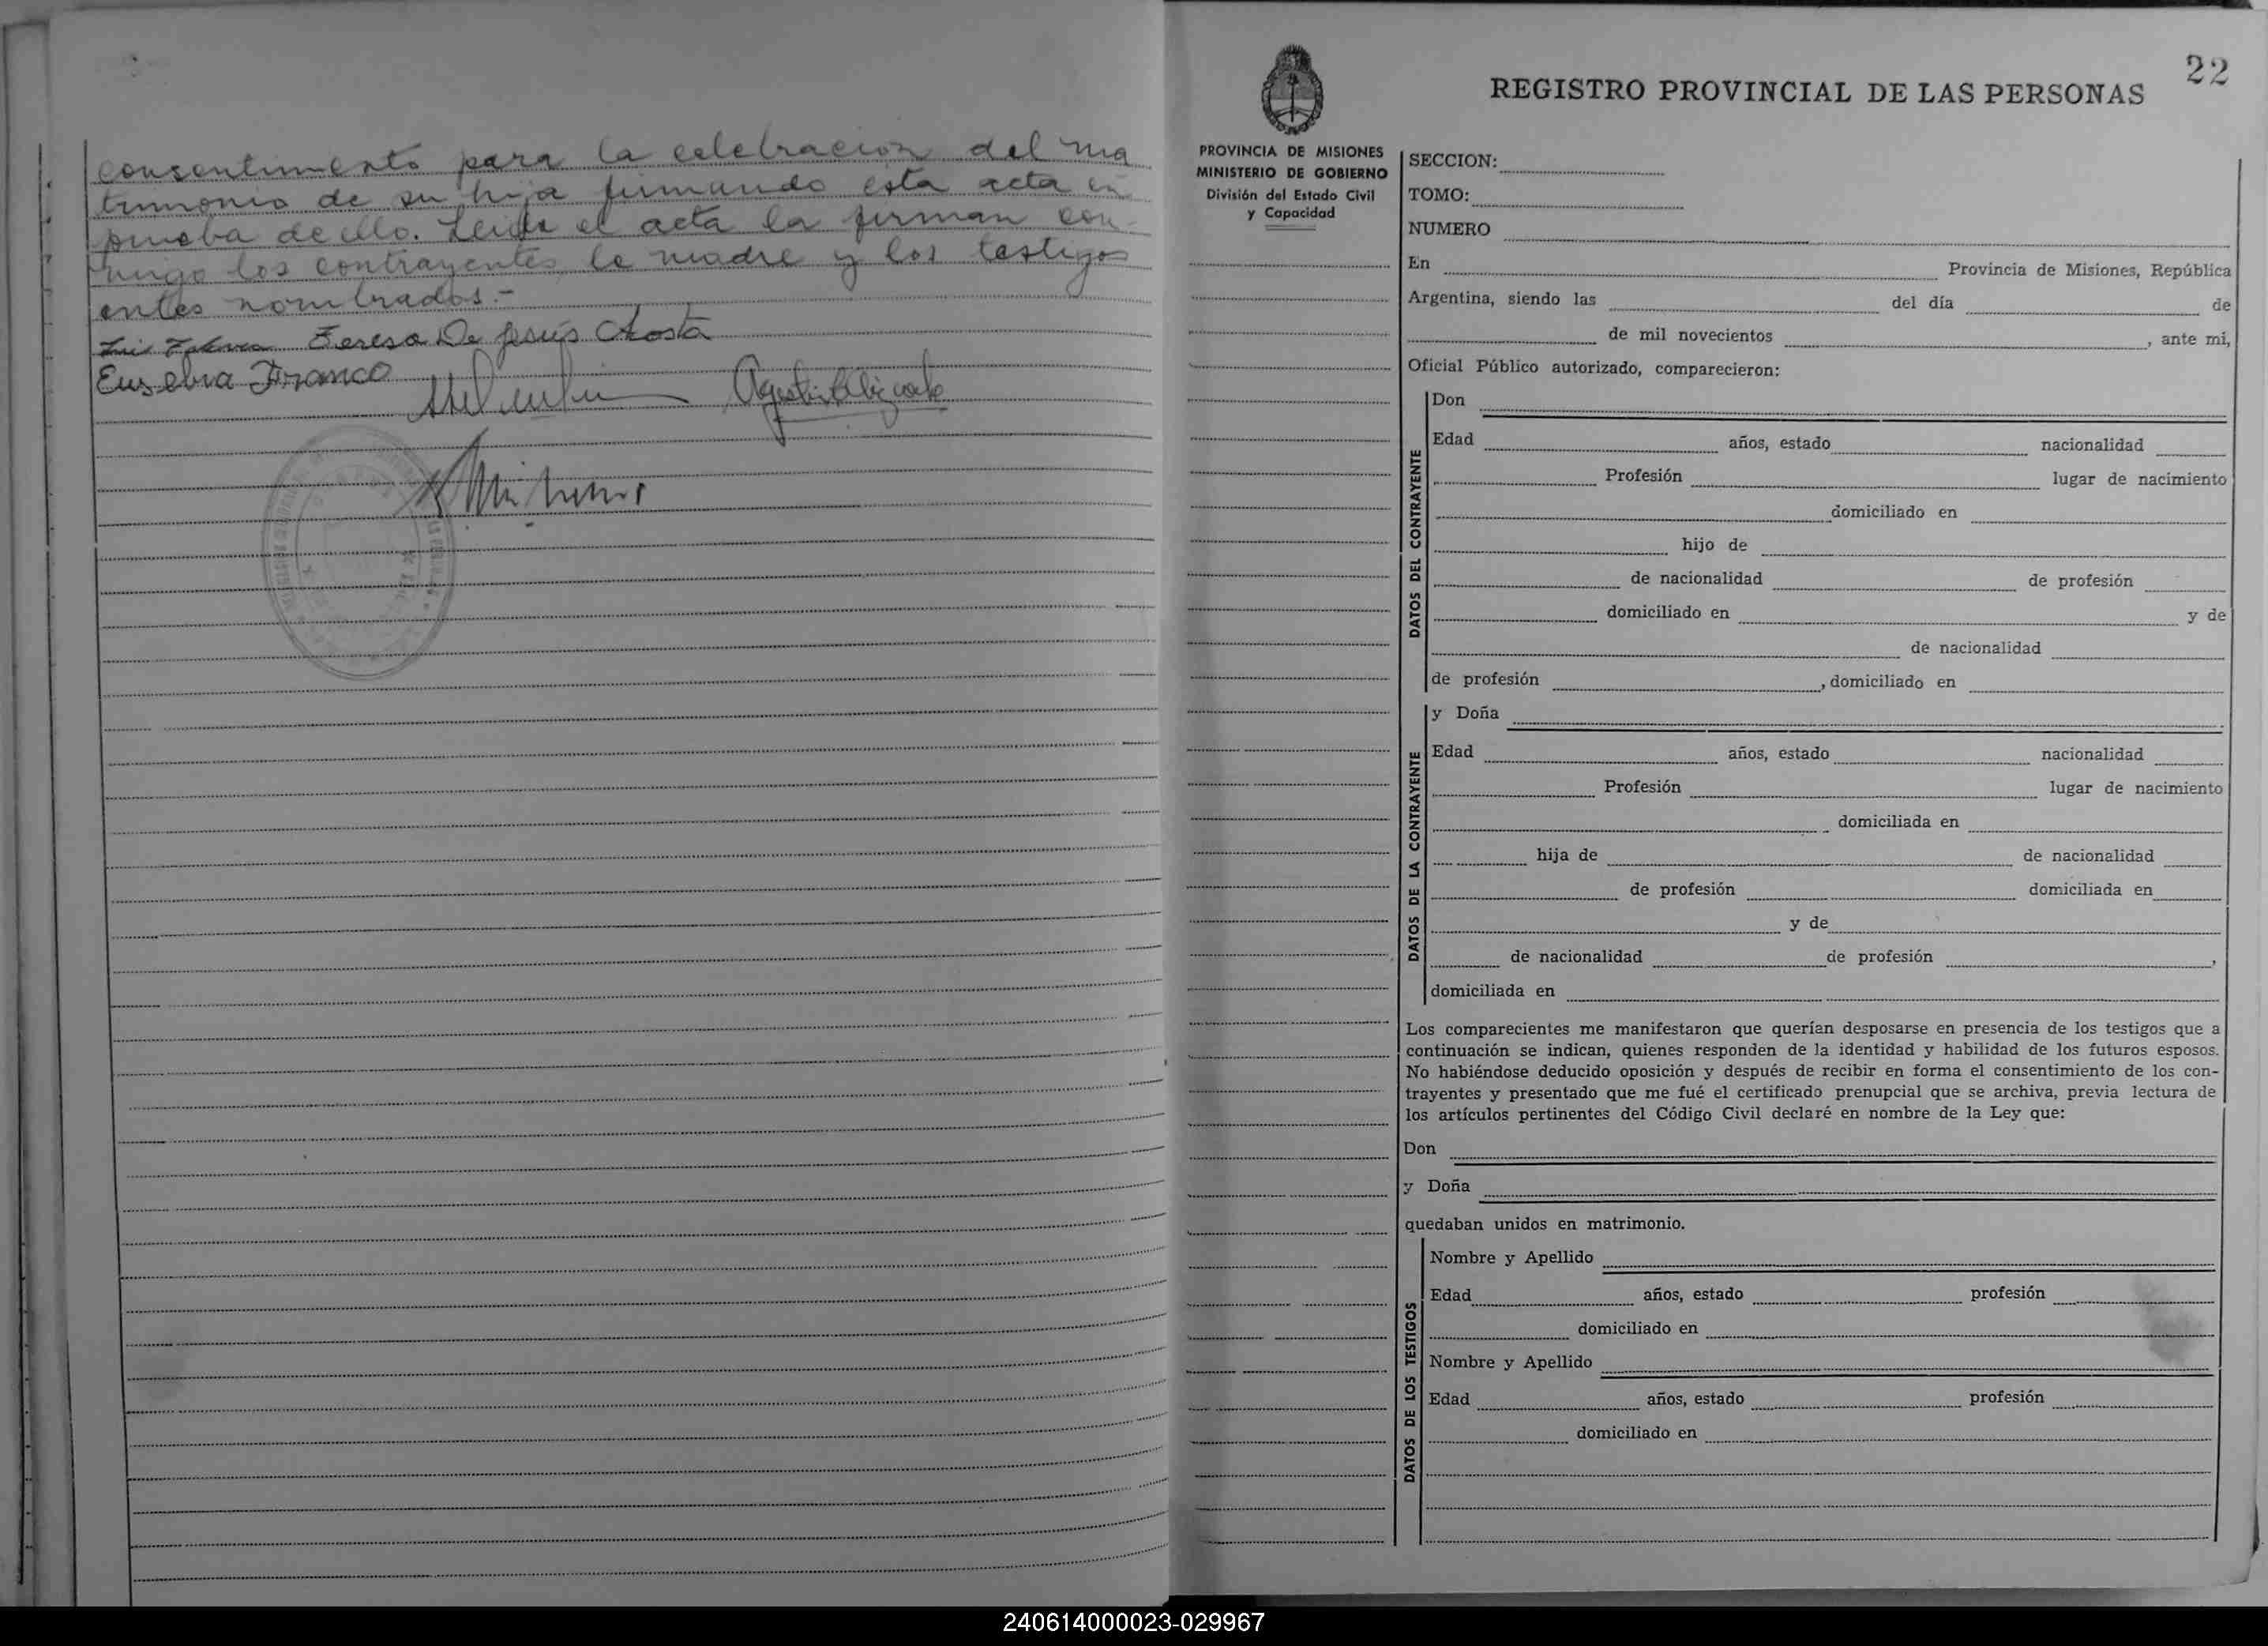 consentimiento para la celebración del ma
trimonio de su hija firmando esta acta en
prueba de ello. Leida el acta la firman con
migo los contrayentes, la madre y los testigos
antes nombrados.-
Luis Teresa De Jesús Acosta
Eusebia Franco
22
REGISTRO PROVINCIAL DE LAS PERSONAS
PROVINCIA DE MISIONES
MINISTERIO DE GOBIERNO
División del Estado Civil
y Capacidad
SECCION:
TOMO:
NUMERO
En Provincia de Misiones, República
Argentina, siendo las del día de
de mil novecientos , ante mi,
Oficial Público autorizado, comparecieron:
DATOS DEL CONTRAYENTE
Don
Edad años, estado nacionalidad
Profesión lugar de nacimiento
domiciliado en
hijo de
de nacionalidad de profesión
domiciliado en y de
de nacionalidad
de profesión , domiciliado en
DATOS DE LA CONTRAYENTE
y Doña
Edad años, estado nacionalidad
Profesión lugar de nacimiento
domiciliada en
hija de de nacionalidad
de profesión domiciliada en
y de
de nacionalidad de profesión ,
domiciliada en
Los comparecientes me manifestaron que querían desposarse en presencia de los testigos que a
continuación se indican, quienes responden de la identidad y habilidad de los futuros esposos.
No habiéndose deducido oposición y después de recibir en forma el consentimiento de los con-
trayentes y presentado que me fué el certificado prenupcial que se archiva, previa lectura de
los artículos pertinentes del Código Civil declaré en nombre de la Ley que:
Don
y Doña
quedaban unidos en matrimonio.
DATOS DE LOS TESTIGOS
Nombre y Apellido
Edad años, estado profesión
domiciliado en
Nombre y Apellido
Edad años, estado profesión
domiciliado en
240614000023-029967